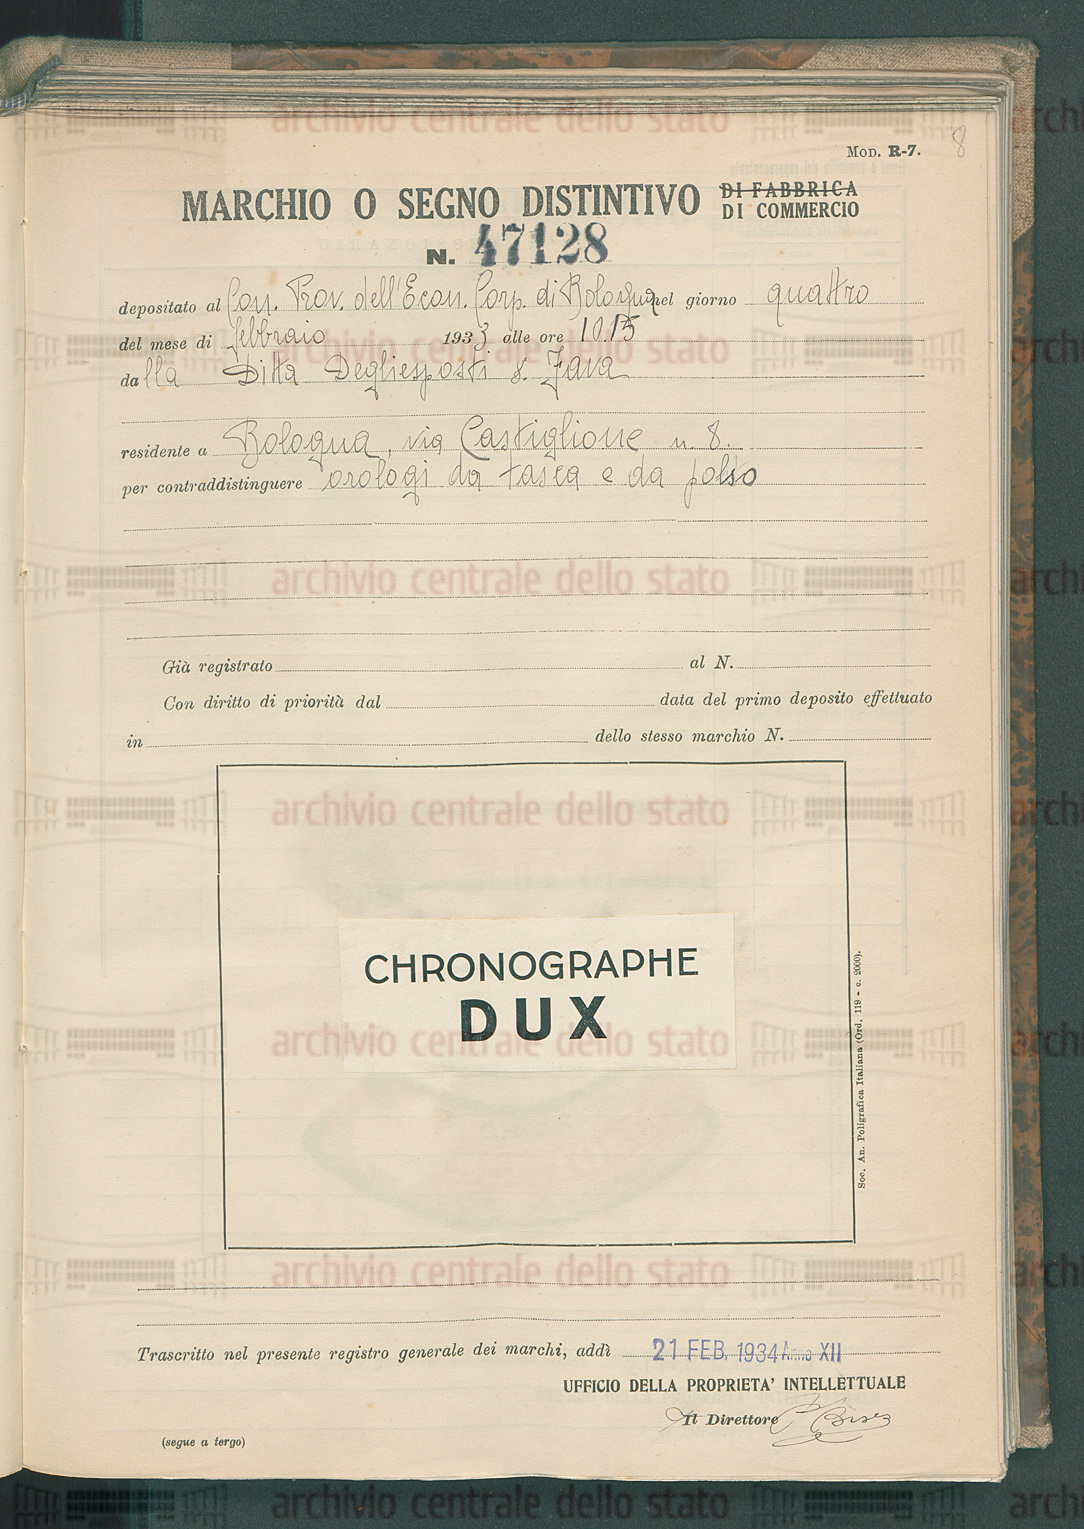 8
MOD. R-7.
MARCHIO O SEGNO DISTINTIVO DI FABBRICA
DI COMMERCIO
N. 47128
depositato al Con. Prov. dell'Econ. Corp. di Bologna nel giorno quattro
del mese di febbraio 1933 alle ore 10.15
dalla Ditta Degliesposti & Fava
residente a Bologna, via Castiglione n. 8.
per contraddistinguere orologi da tasca e da polso
Già registrato al N.
Con diritto di priorità dal data del primo deposito effettuato
in dello stesso marchio N.
CHRONOGRAPHE
DUX
Soc. An. Poligrafica Italiana (Ord. 119 - c. 2000).
Trascritto nel presente registro generale dei marchi, addì 21 FEB. 1934 Anno XII
UFFICIO DELLA PROPRIETA' INTELLETTUALE
Il Direttore
(segue a tergo)
archivio centrale dello stato